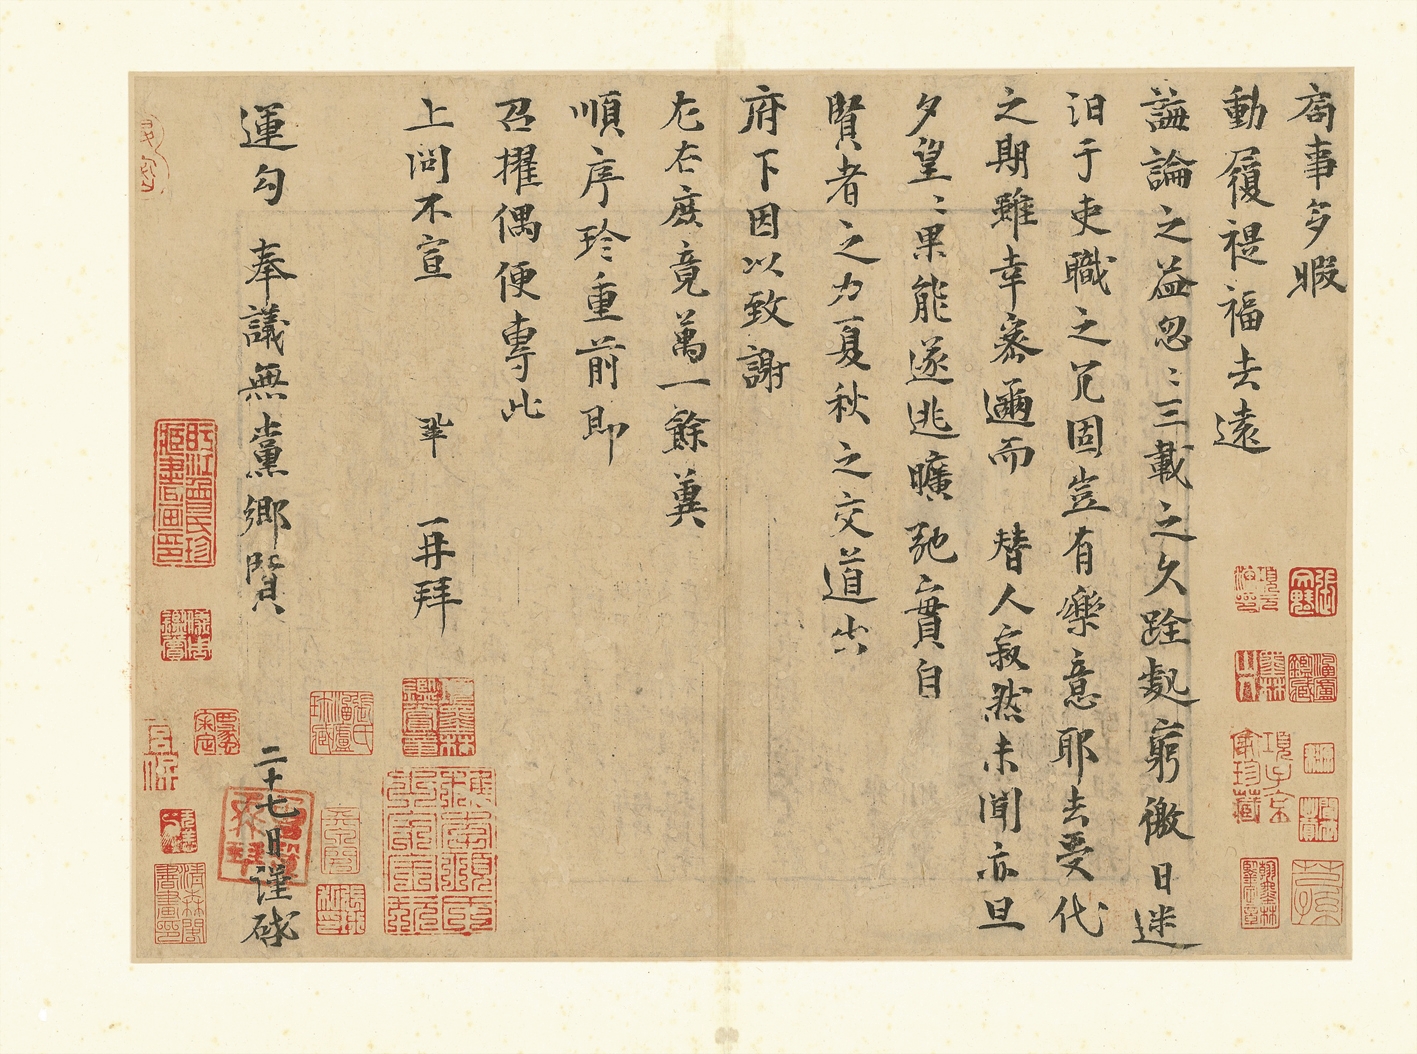 局事多暇
動履禔福去遠
誨論之益忽〻三載之久跧處窮徼日迷
汨于吏職之冗固豈有樂意耶去受代
之期雖幸密邇而　替人寂然未聞亦旦
夕望〻果能遂逃曠弛實自
賢者之力夏秋之交道出
府下因以致謝
左右庶竟萬一餘冀
順序珍重前即
召擢偶便專此
上問不宣　鞏　再拜
運勾　奉議無黨鄉賢
二十七日謹啟